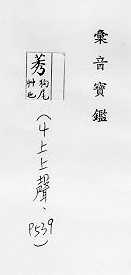 彙音寶鑑
莠
狗尾
艸也
(丩上上聲、P539)